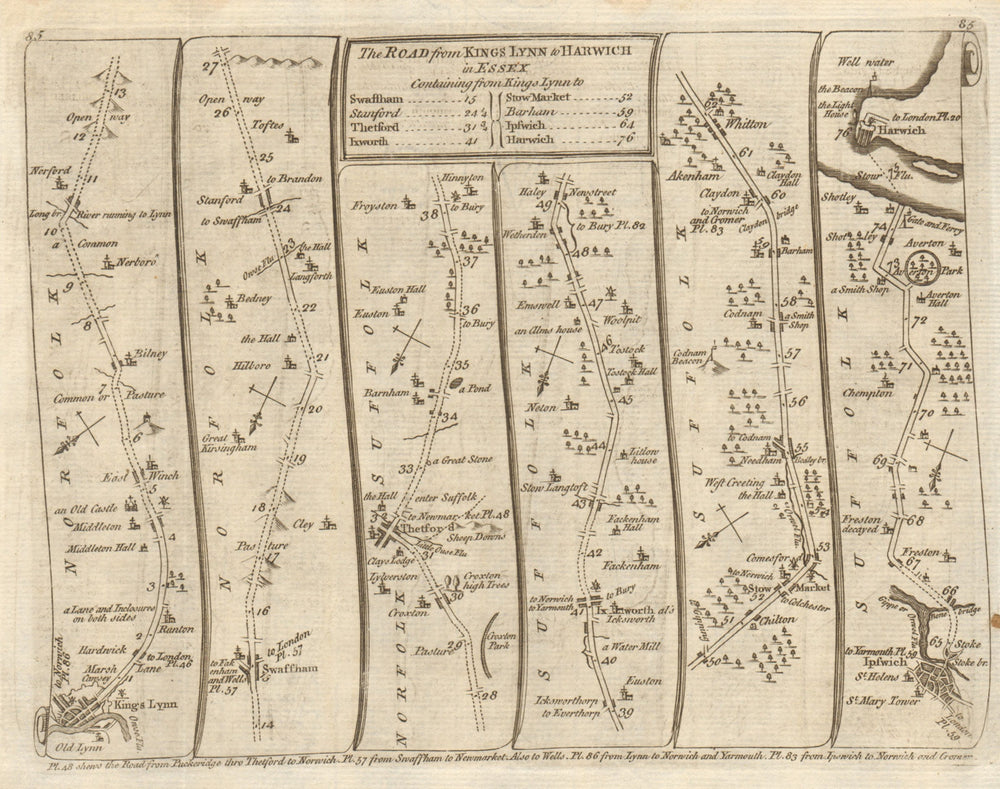 85
85
The ROAD from KINGS LYNN to HARWICH
in ESSEX
Containing from Kings Lynn to
Swaffham 15
Stanford 24¼
Thetford 31¾
Ixworth 41
Stow Market 52
Barham 59
Ipswich 64
Harwich 76
13
Open way
12
Nerford
11
Long br.
River running to Lynn
10
a Common
Nerboro
9
8
Bilney
7
Common or Pasture
6
East Winch
5
an Old Castle
Middleton
4
Middleton Hall
3
a Lane and Inclosures
on both sides
Runton
2
Hardwick
to London
Pl. 46
Lane
Marsh
Causey
1
to Norwich
Pl. 86
Kings Lynn
Ouse Flu
Old Lynn
NORFOLK
27
Open way
26
Toftes
25
to Brandon
Stanford
24
to Swaffham
23
the Hall
Ouse Flu
Langforth
Bedney
22
the Hall
21
Hilboro
20
Great
Kirsingham
19
18
Cley
Pasture
17
16
to London
Pl. 57
to Fak
enham
and Wells
Pl. 57
Swaffham
14
NORFOLK
Hinnyton
to Bury
Froyston
38
37
Euston Hall
36
Euston
to Bury
35
a Pond
Barnham
34
a Great Stone
33
the Hall
enter Suffolk
32
to Newmarket Pl. 48
Thetford
Sheep Downs
Little Ouse Flu
31
Clays Lodge
Lylverston
Croxton
high Trees
30
Croxton
29
Croxton
Park
Pasture
28
SUFFOLK
NORFOLK
Haley
Newstreet
49
to Bury Pl. 82
Wetherden
48
Emswell
47
Woolpit
an Alms house
46
Tostock
Tostock Hall
45
Noton
44
Litlow
house
Stow Langtoft
43
Fackenham
Hall
42
Fackenham
to Bury
to Norwich
to Yarmouth
41
Ixworth als
Icksworth
a Water Mill
40
Euston
Icksworthorp
to Everthorp
39
SUFFOLK
62
Whitton
61
Akenham
Claydon
Hall
Claydon
60
to Norwich
and Cromer
Pl. 83
Claydon bridge
59
Barham
58
Codnam
a Smith
Shop
57
Codnam
Beacon
56
to Codnam
55
Needham
Bosby br.
West Creeting
the Hall
54
Orwel Flu
53
Comesford
to Norwich
Stow Market
52
to Colchester
51
Chilton
Gipping
50
SUFFOLK
Well water
the Beacon
the Light
House
to London Pl. 20
76
Harwich
75
Stour Flu.
Shotley
74
Gate and Ferry
Shotley
Averton
73
Averton Park
a Smith Shop
Averton
Hall
72
71
Chempton
70
69
68
Freston
decayed
Freston
67
66
Gippe or
Orwel Flu
Stone bridge
65
Stoke
Stoke br.
to Yarmouth Pl. 59
Ipswich
St. Helens
St. Mary Tower
to London
Pl. 59
SUFFOLK
Pl. 48 shews the Road from Puckeridge thro Thetford to Norwich. Pl. 57 from Swaffham to Newmarket. Also to Wells. Pl. 86 from Lynn to Norwich and Yarmouth. Pl. 83 from Ipswich to Norwich and Cromer.